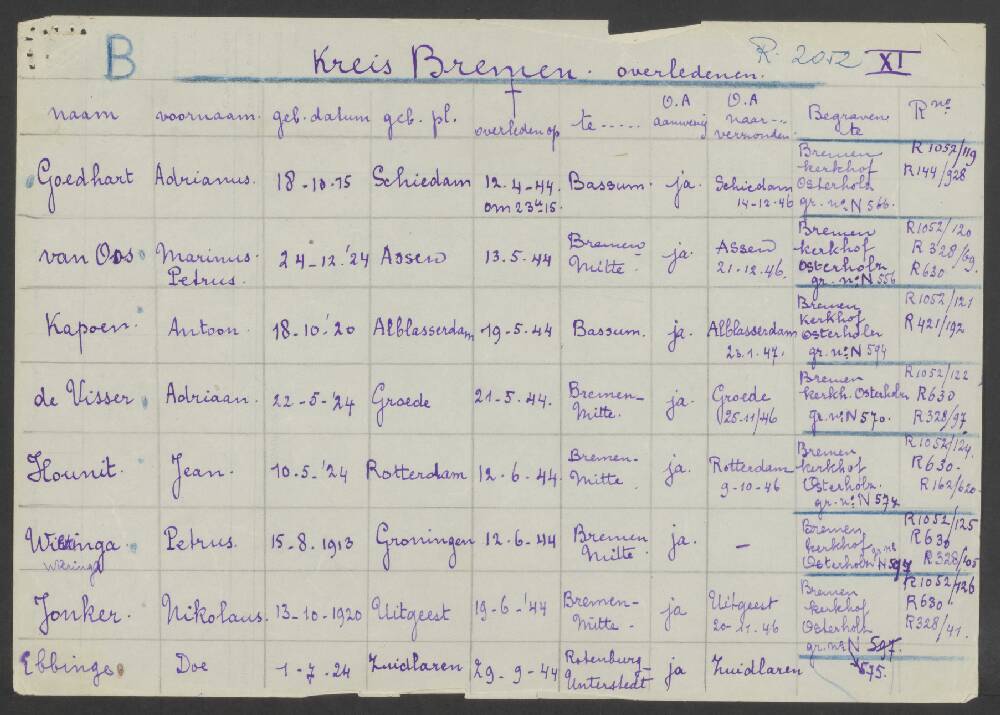 B Kreis Bremen. overledenen. R. 2052 XI
naam voornaam. geb. datum geb. pl. † overleden op te ..... O.A aanwezig O.A naar verzonden Begraven te R no.
Goedhart Adrianus. 18-10-15 Schiedam 12.4-44. Bassum. ja. Schiedam Bremen R 1052/119
om 23 u 15. 14-12-46 kerkhof R 144/928
Osterholz
gr. no. N 566.
van Oos Marinus. 24-12.'24 Assen 13.5-44 Bremen Assen Bremen R1052/120
Petrus. Mitte. ja. 21-12.46. kerkhof R 328/69.
Osterholz R630
gr. no. N 556
Kapoen. Antoon. 18-10.'20 Alblasserdam 19-5.44 Bassum. ja. Alblasserdam Bremen R1052/121
23.1.47. kerkhof R 421/192
Osterholz
gr. no. N 594
de Visser Adriaan. 22-5-'24 Groede 21-5.44. Bremen- ja. Groede Bremen R1052/122
Mitte. 25-11/46 kerkh. Osterholz R630
gr. no. N 570. R328/97.
Hounit. Jean. 10.5-'24 Rotterdam 12-6-44. Bremen- ja. Rotterdam Bremen R1052/124.
Mitte 9-10-46 kerkhof R630.
Osterholz. R162/620.
gr. no. N 574
Petrus. 15-8.1913 Groningen 12.6-44 Bremen ja. - Bremen R1052/125
Wieringa Mitte. kerkhof gr. no. R630
Osterholz N 597 R328/105
Jonker. Nikolaus. 13-10-1920 Uitgeest 19-6-'44 Bremen- ja Uitgeest Bremen R1052/126
Mitte. 20-11.46 kerkhof R630.
Osterholz R328/41.
gr. no. N 597.
575.
Ebbinge Doe 1-7.24 Zuidlaren 29-9-44 Rotenburg- ja Zuidlaren
Unterstedt